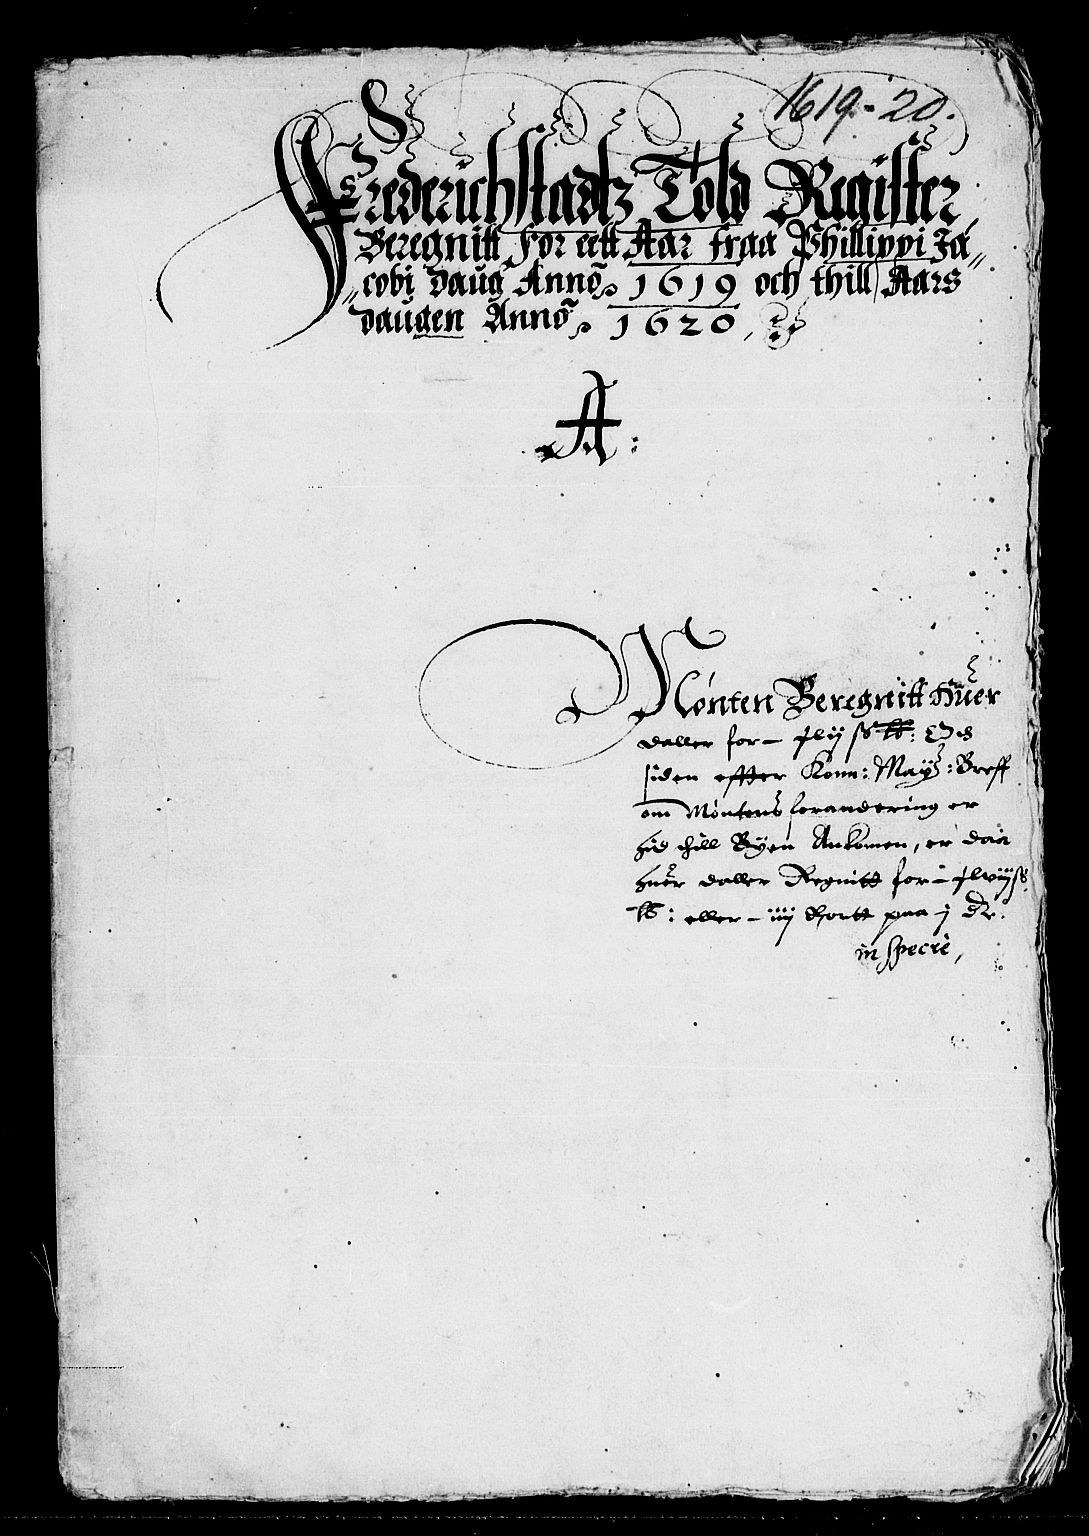 1619-20.
Frederichstadtz Told Register
Beregnitt for eett Aar fraa Phillippi Ja„
„cobi daug Anno 1619 och thill Aars
daugen Anno 1620,
A:
Mønten Beregnitt Huer
daller for
siden effter Konn: Maytz: Breff
om Møntens forandering er
hid thill Byen Ankomen, er daa
huer daller Regnitt for
eller iiij Hortt paa j Dr.
in specie,